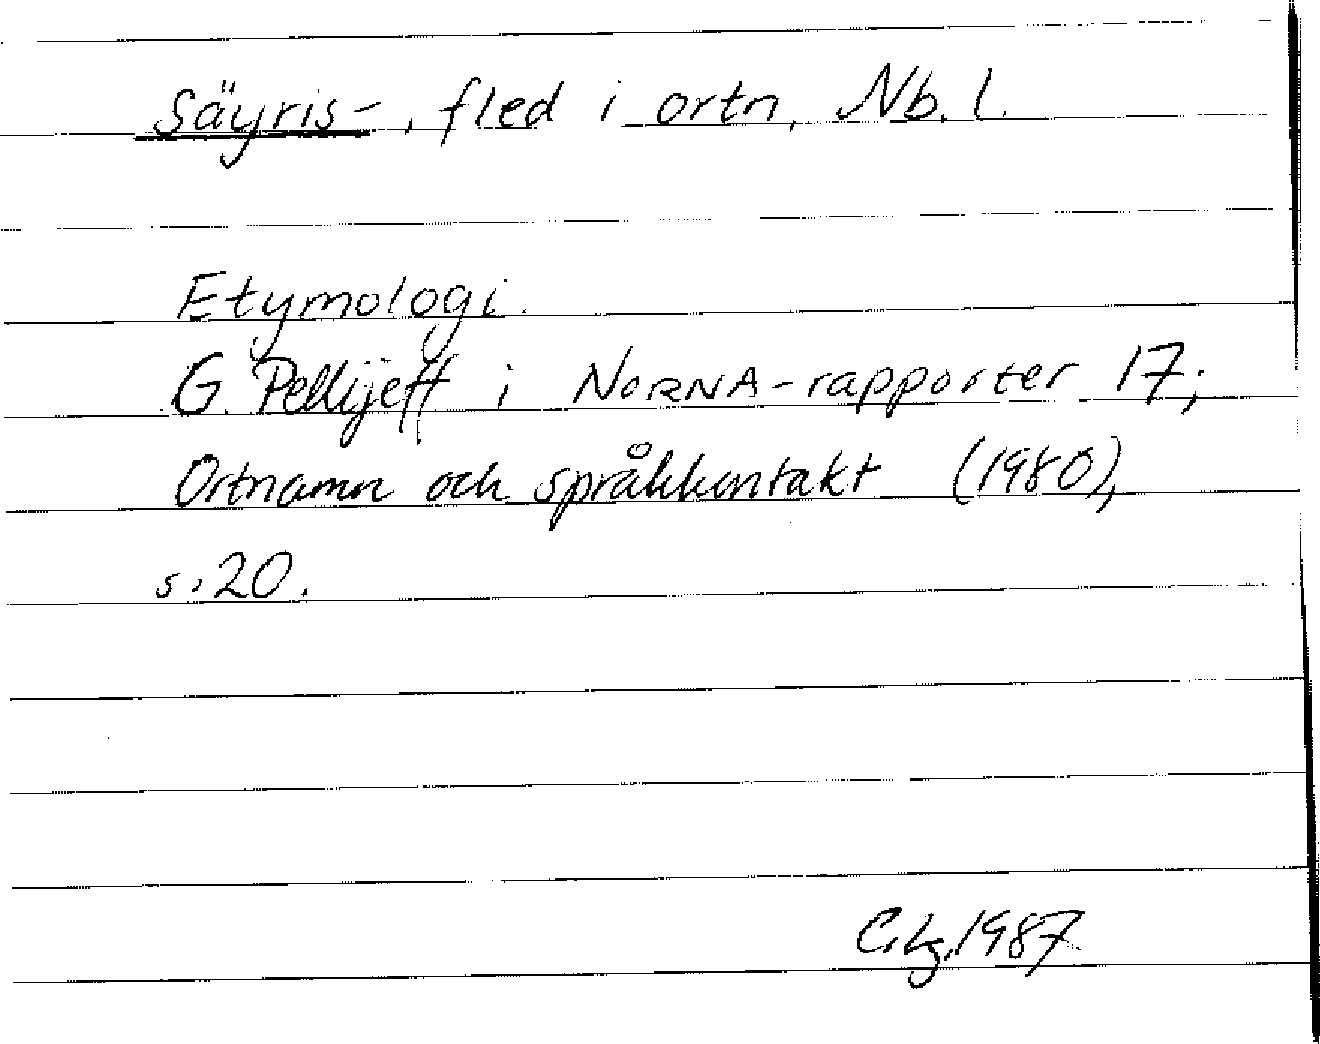 Säyris-, fled i ortn, Nb. l.
Etymologi.
G. Pellijeff i NORNA-rapporter 17;
Ortnamn och språkkontakt (1980),
s. 20.
C. Lg. 1987